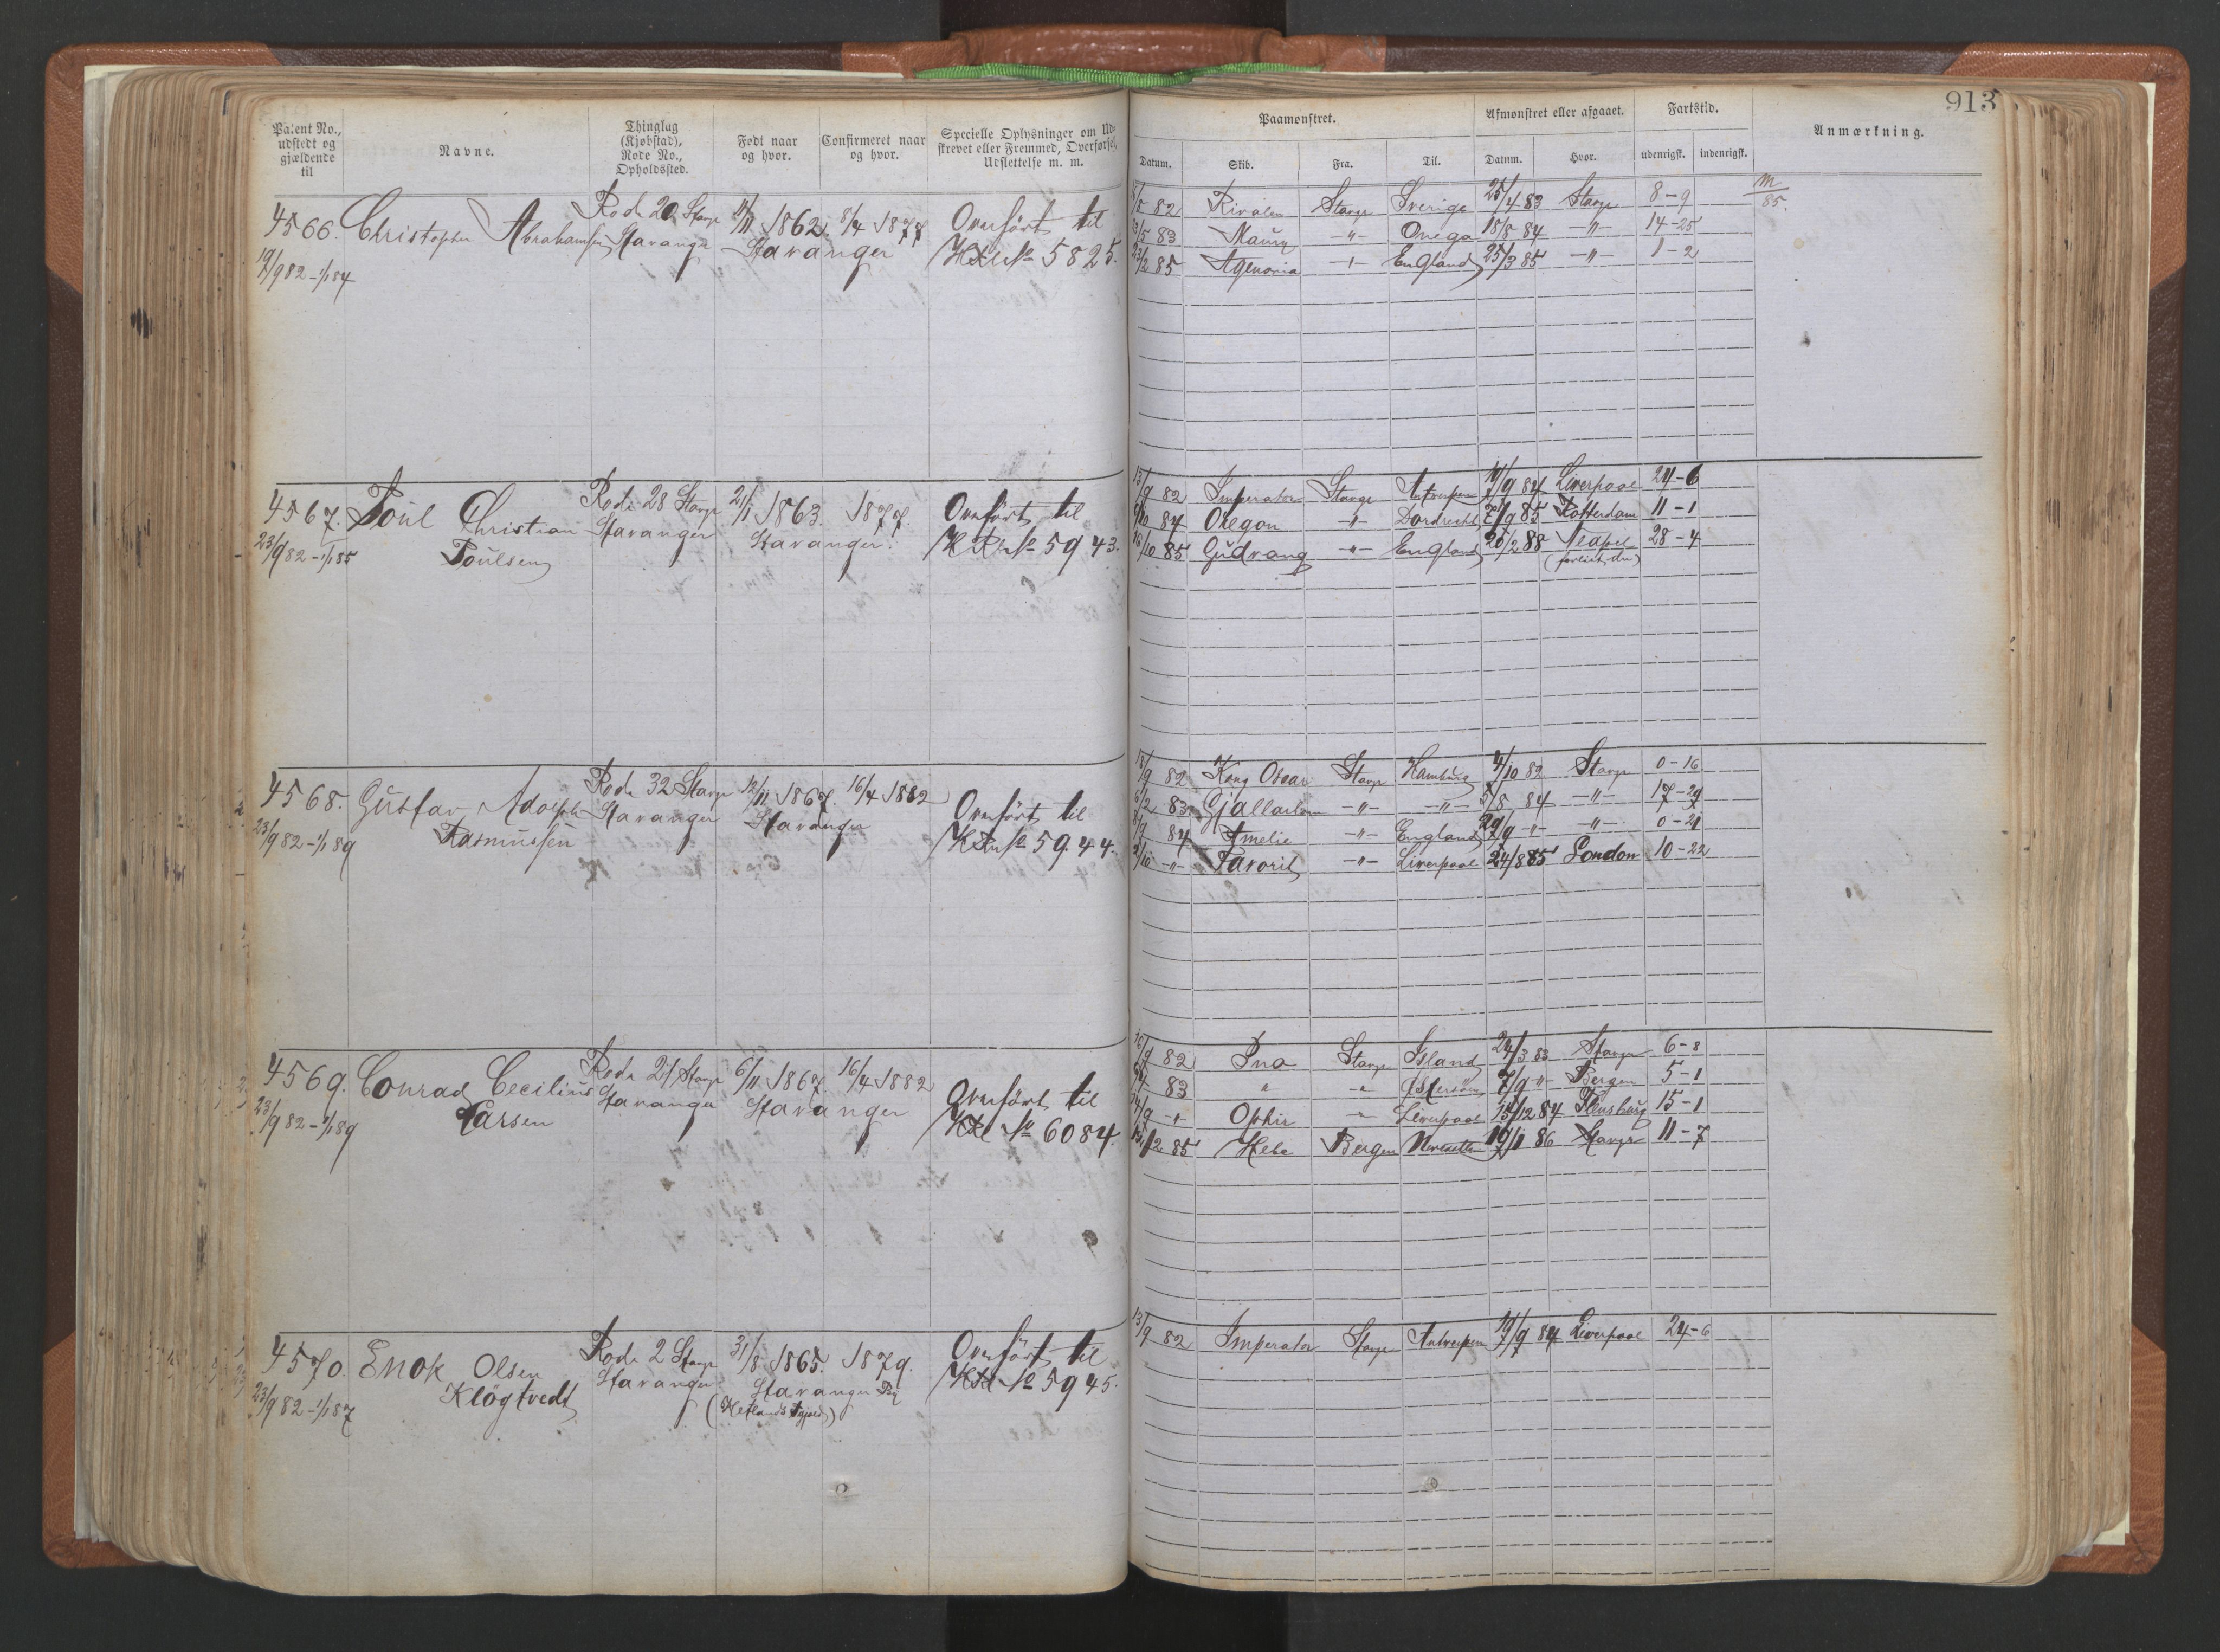 913
Patent No., udstedt og gjældende til
Navne.
Thinglag (Kjøbstad), Rode No., Opholdssted.
Født naar og hvor.
Confirmeret naar og hvor.
Specielle Oplysninger om Udskrevet eller Fremmed, Overførsel, Udslettelse m. m.
Paamønstret.
Afmønstret eller afgaaet.
Fartstid.
Anmærkning.
Datum. Skib. Fra. Til. Datum. Hvor. udenrigsk. indenrigsk.
4566. Christopher Abrahamsen Rode 20 Stavgr 1862 8/4 1877 Overført til
19/9 82 - 1/1 84 Stavanger Stavanger No 5825.
82 Rivalen Stavgr Sverige 25/4 83 Stavgr 8-9
83 Maury -"- Onega 18/8 84 -"- 14-25
23/2 85 Agenoria -"- England 25/3 85 -"- 1-2
M/85.
4567. Poul Christian Rode 28 Stavgr 21/1 1863. 1877. Overført til
23/9 82 - 1/1 85 Poulsen Stavanger Stavanger. No 5943.
13/9 82 Imperator Stavgr Antwerpen 84 Liverpool 24-6
84 Oregon -"- Dordrecht 7/9 85 Rotterdam 11-1
/10 85 Gudvang -"- England 20/2 88 Neapel 28-4
4568. Gustav Adolph Rode 32 Stavgr 12/11 1867. 16/4 1882 Overført til
23/9 82 - 1/1 89 Rasmussen Stavanger Stavanger No 5944.
18/9 82 Kong Oscar Stavgr Hamburg 4/10 82 Stavgr 0-16
6/2 83 Gjallarhorn -"- -"- 5/8 84 -"- 17-29
84 Amelie -"- England 29/9 -"- -"- 0-21
/10 -"- Favorit -"- Liverpool 24/8 85 London 10-22
4569. Conrad Cecilius Rode 21 Stavgr 6/11 1867. 16/4 1882 Overført til
23/9 82 - 1/1 89 Larsen Stavanger Stavanger No 6084.
/9 82 Ino Stavgr Island 24/3 83 Stavgr 6-8
83 " " Østersøen 7/9 -"- Bergen 5-1
/9 -"- Ophir " Liverpool /12 84 Flensburg 15-1
/2 85 Hebe Bergen Newcastle 19/1 86 Stavgr 11-7
4570. Enok Olsen Rode 2 Stavgr 31/8 1865. 1879. Overført til
23/9 82 - 1/1 87 Kløgtvedt Stavanger Stavanger By No 5945.
(Hetlands
13/9 82 Imperator Stavgr Antwerpen 19/9 84 Liverpool 24-6